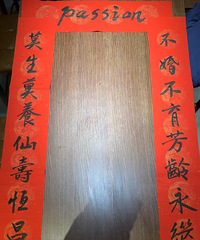 passion
不婚不育芳齡永繼
莫生莫養仙壽恒昌